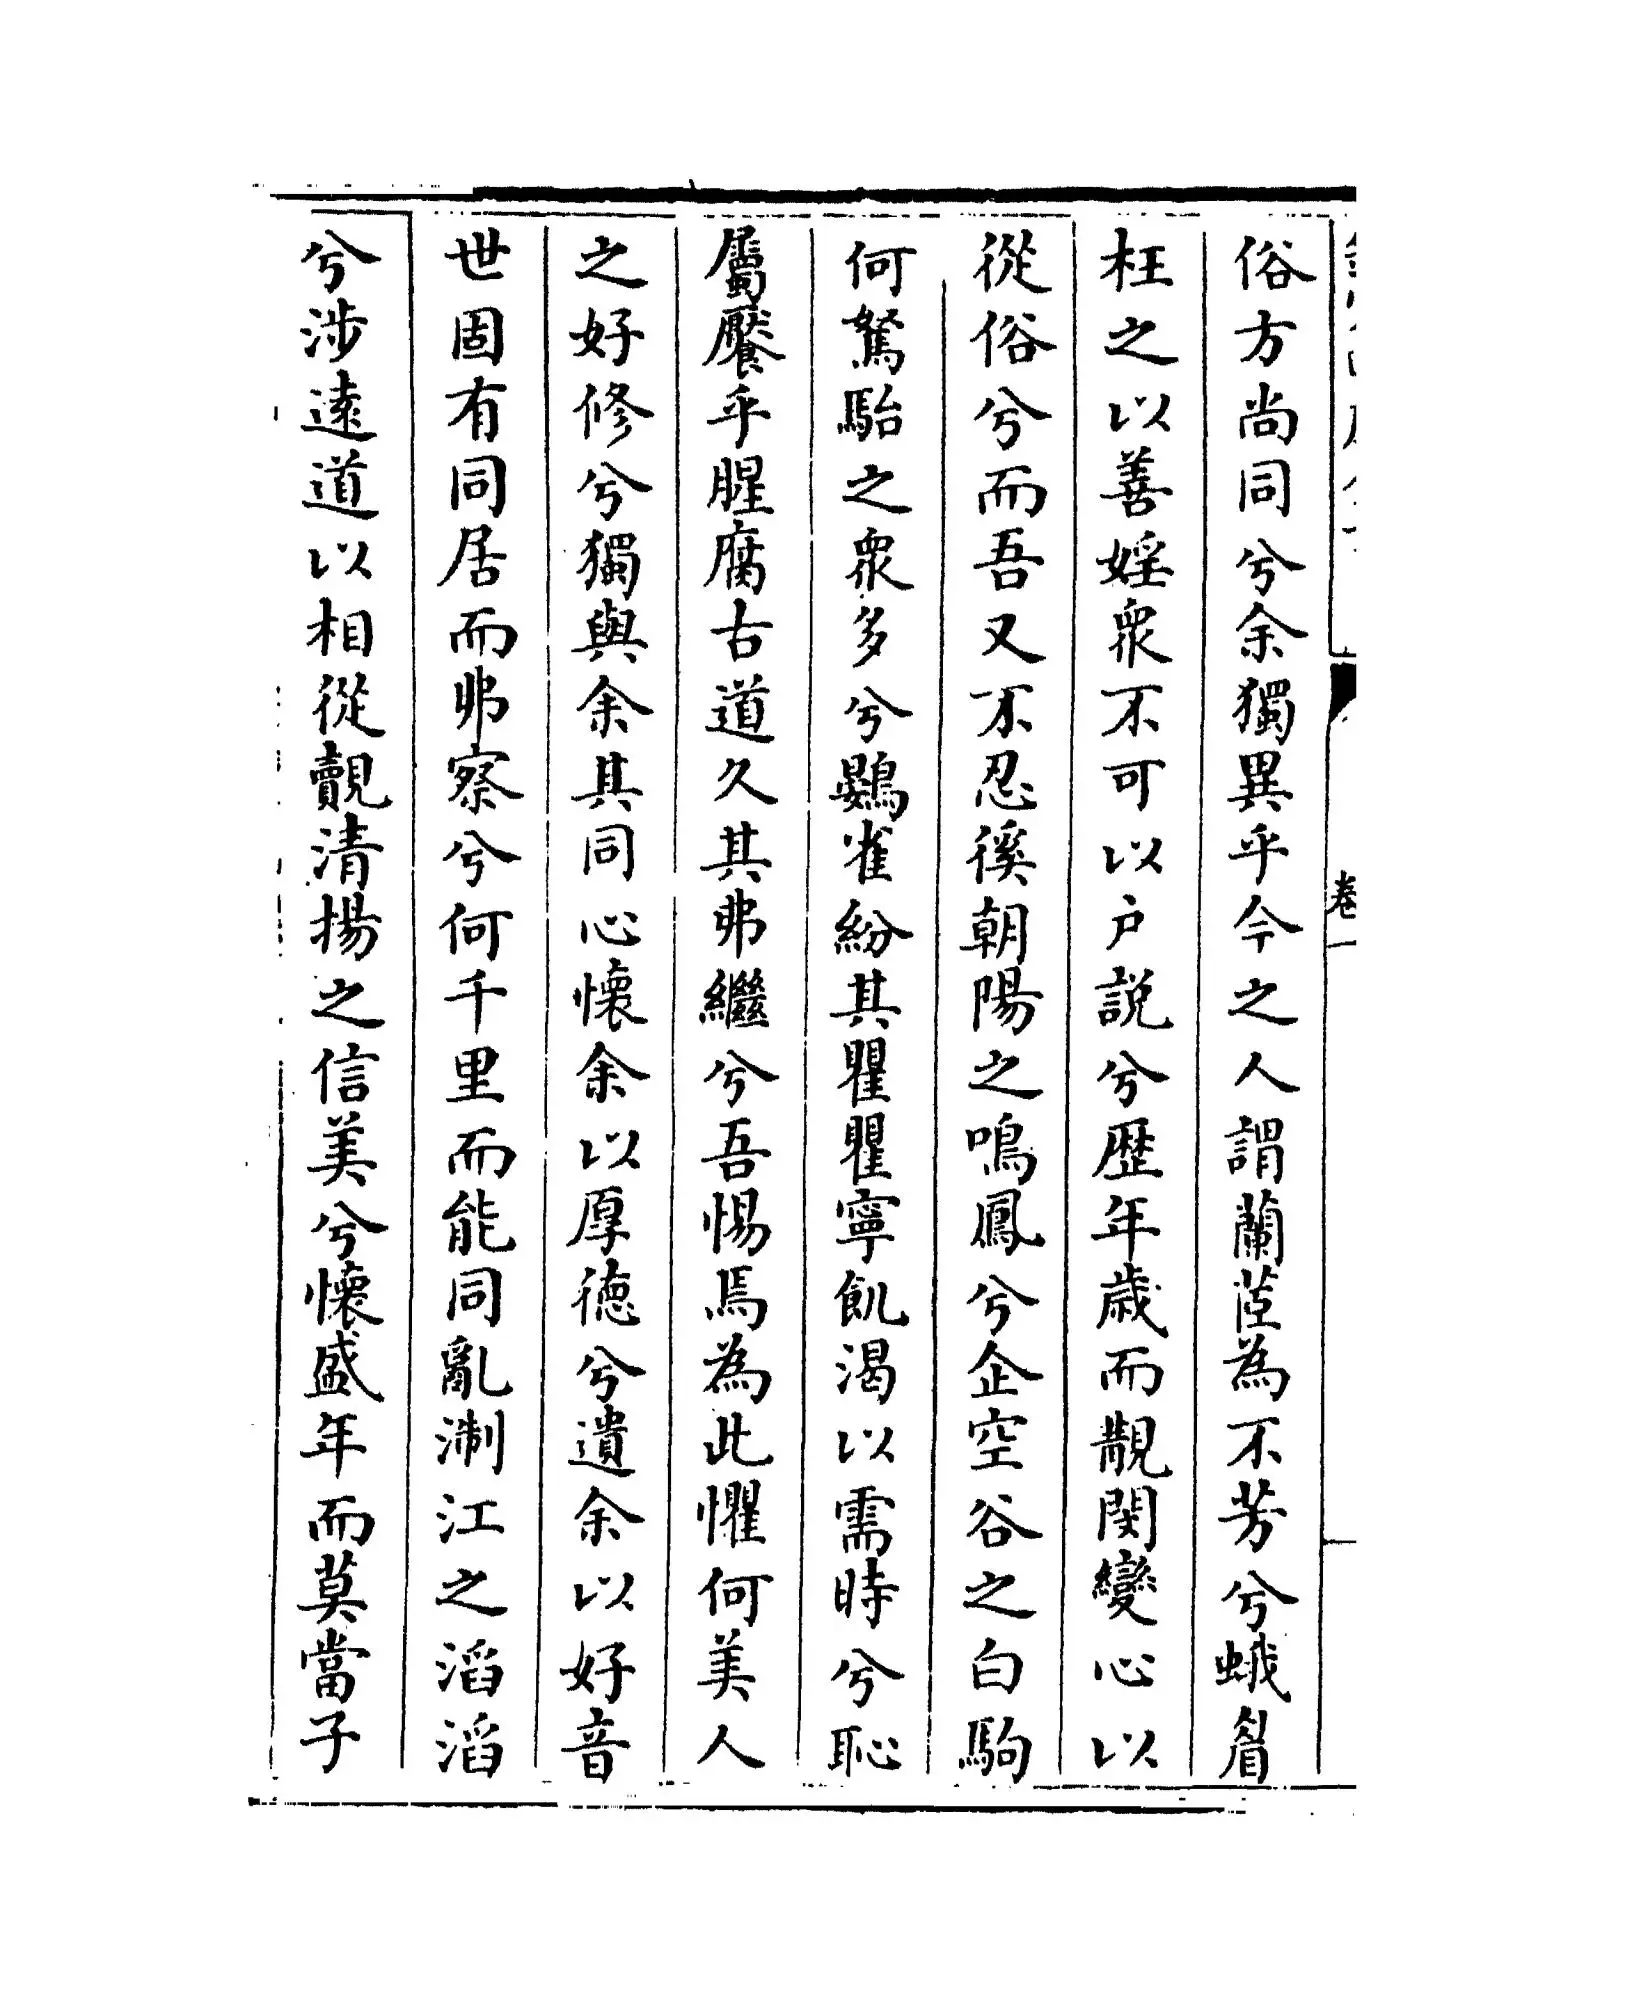 卷一
俗方尚同兮余獨異乎今之人謂蘭茝為不芳兮蛾眉
枉之以善婬衆不可以户説兮歴年歳而覯閔變心以
從俗兮而吾又不忍徯朝陽之鳴鳳兮企空谷之白駒
何駑駘之衆多兮鷃雀紛其瞿瞿寧飢渴以需時兮恥
屬饜乎腥腐古道久其弗繼兮吾惕焉為此懼何美人
之好修兮獨與余其同心懷余以厚徳兮遺余以好音
世固有同居而弗察兮何千里而能同亂淛江之滔滔
兮涉逺道以相從覿清揚之信美兮懷盛年而莫當子